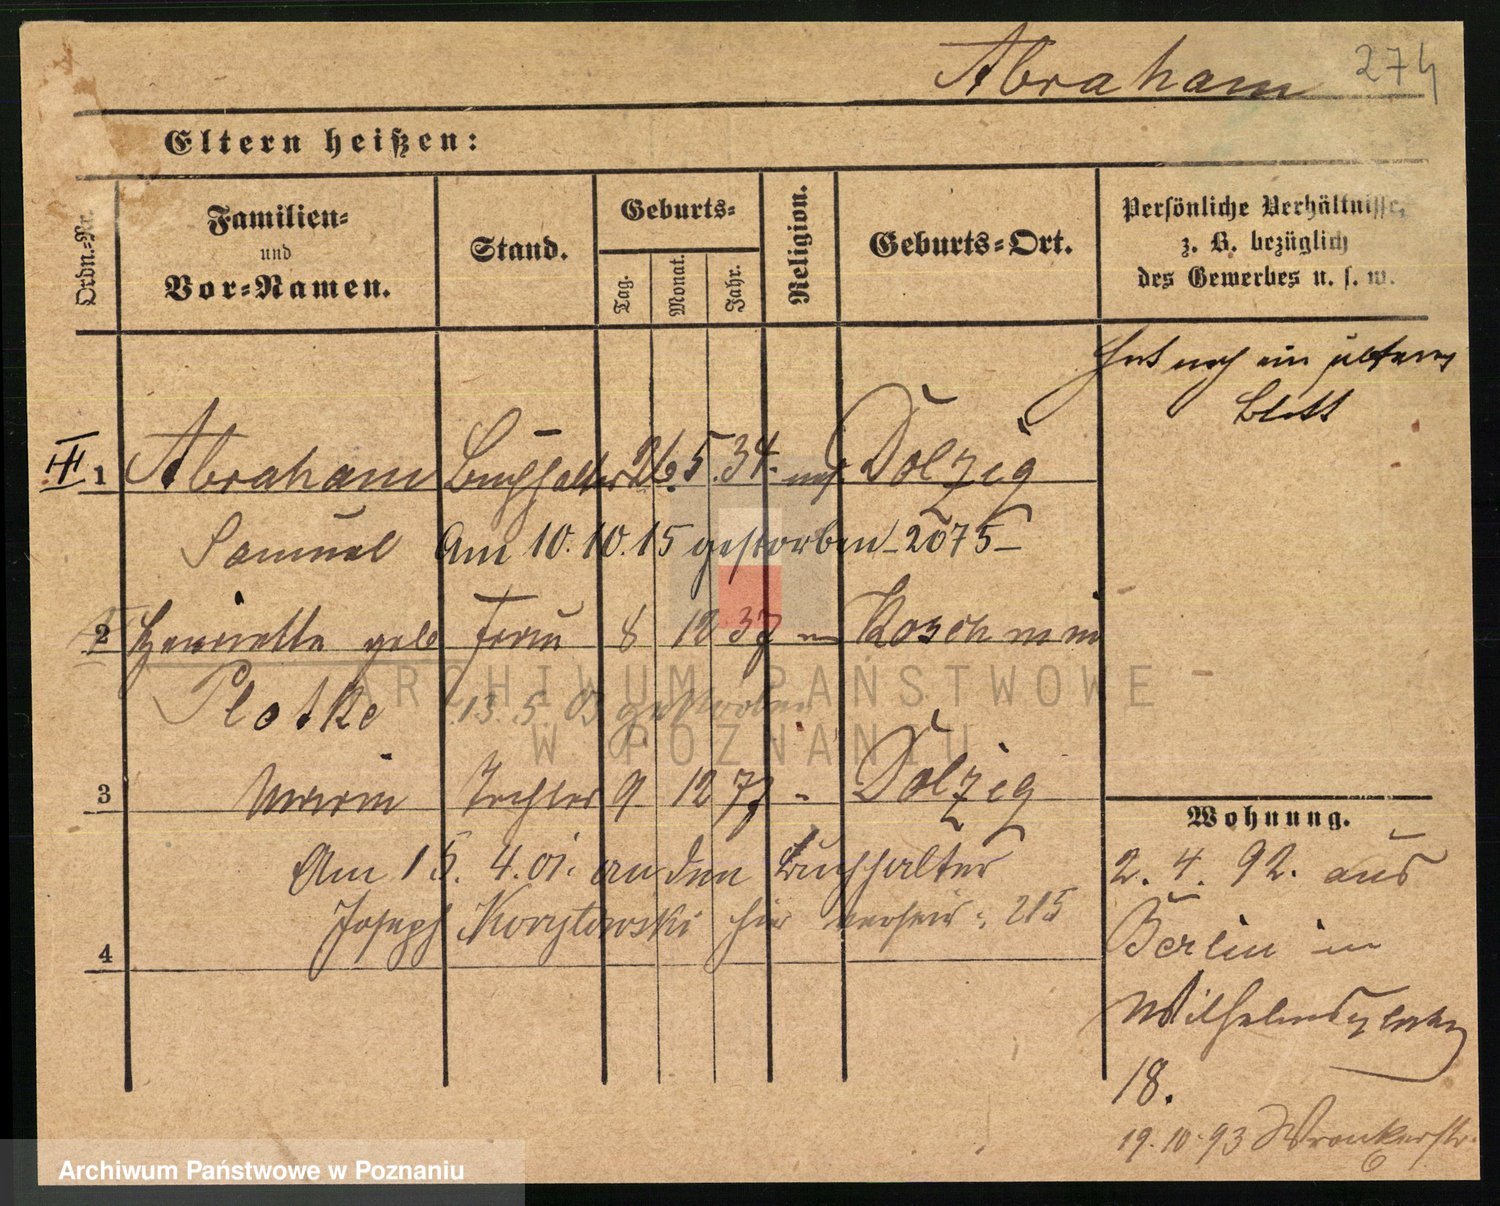 Abraham 274
Eltern heißen:
Ordn.=Nr.
Familien=
und
Vor=Namen.
Stand.
Geburts=
Tag.
Monat.
Jahr.
Religion.
Geburts=Ort.
Persönliche Verhältnisse,
z. B. bezüglich
des Gewerbes u. s. w.
Hat noch ein älteres
Blatt
III 1 Abraham Buchhalter 26. 5. 34. mos. Dolzig
Samuel Am 10. 10. 15 gestorben - 2075 -
2 Henriette geb Frau 8 12 37 " Koschmin
Plotke 13. 5. 03 gestorben
3 Tochter 9. 12 77 " Dolzig
Am 15. 4. 01. an den Buchhalter
Joseph Korytowski hier verheir: 215
4
Wohnung.
2. 4. 92. aus
Berlin in
Wilhelmsplatz
18.
19. 10. 93 Wronkerstr.
6
ARCHIWUM PAŃSTWOWE
W POZNANIU
Archiwum Państwowe w Poznaniu